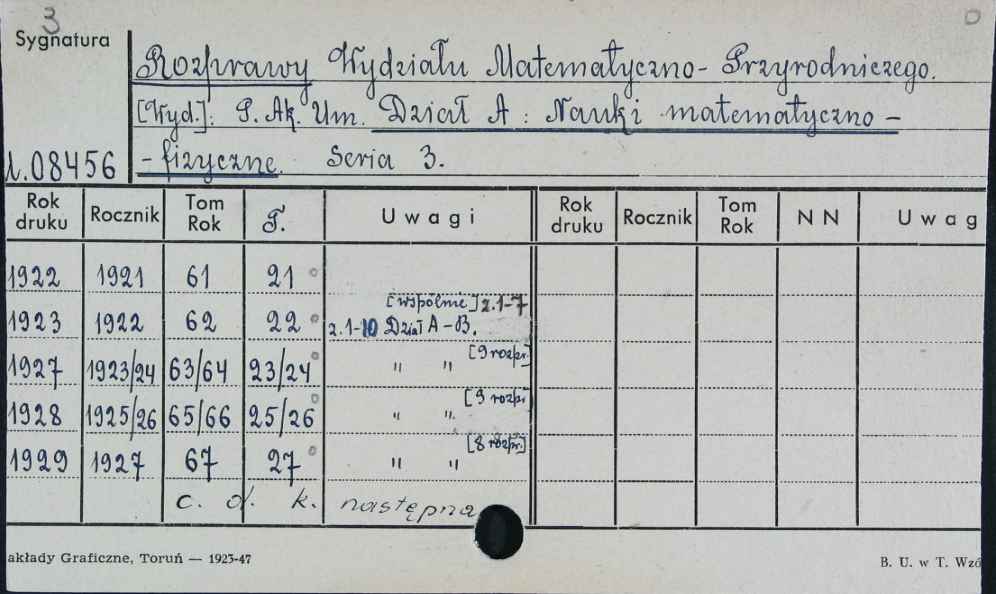 3
Sygnatura
Rozprawy Wydziału Matematyczno-Przyrodniczego.
[Wyd.]: P. Ak. Um. Dział A: Nauki matematyczno-
08456 -fizyczne. Seria 3.
Rok druku Rocznik Tom Rok T. Uwagi Rok druku Rocznik Tom Rok NN Uwag
1922 1921 61 21
[wspólnie] z.1-7
1923 1922 62 22 z.1-10 Dział A-B.
[9 rozpr.]
1927 1923/24 63/64 23/24 " "
[9 rozpr.]
1928 1925/26 65/66 25/26 " "
[8 rozpr.]
1929 1927 67 27 " "
c. d. k. następna
akłady Graficzne, Toruń — 1923-47 B. U. w T. Wzó